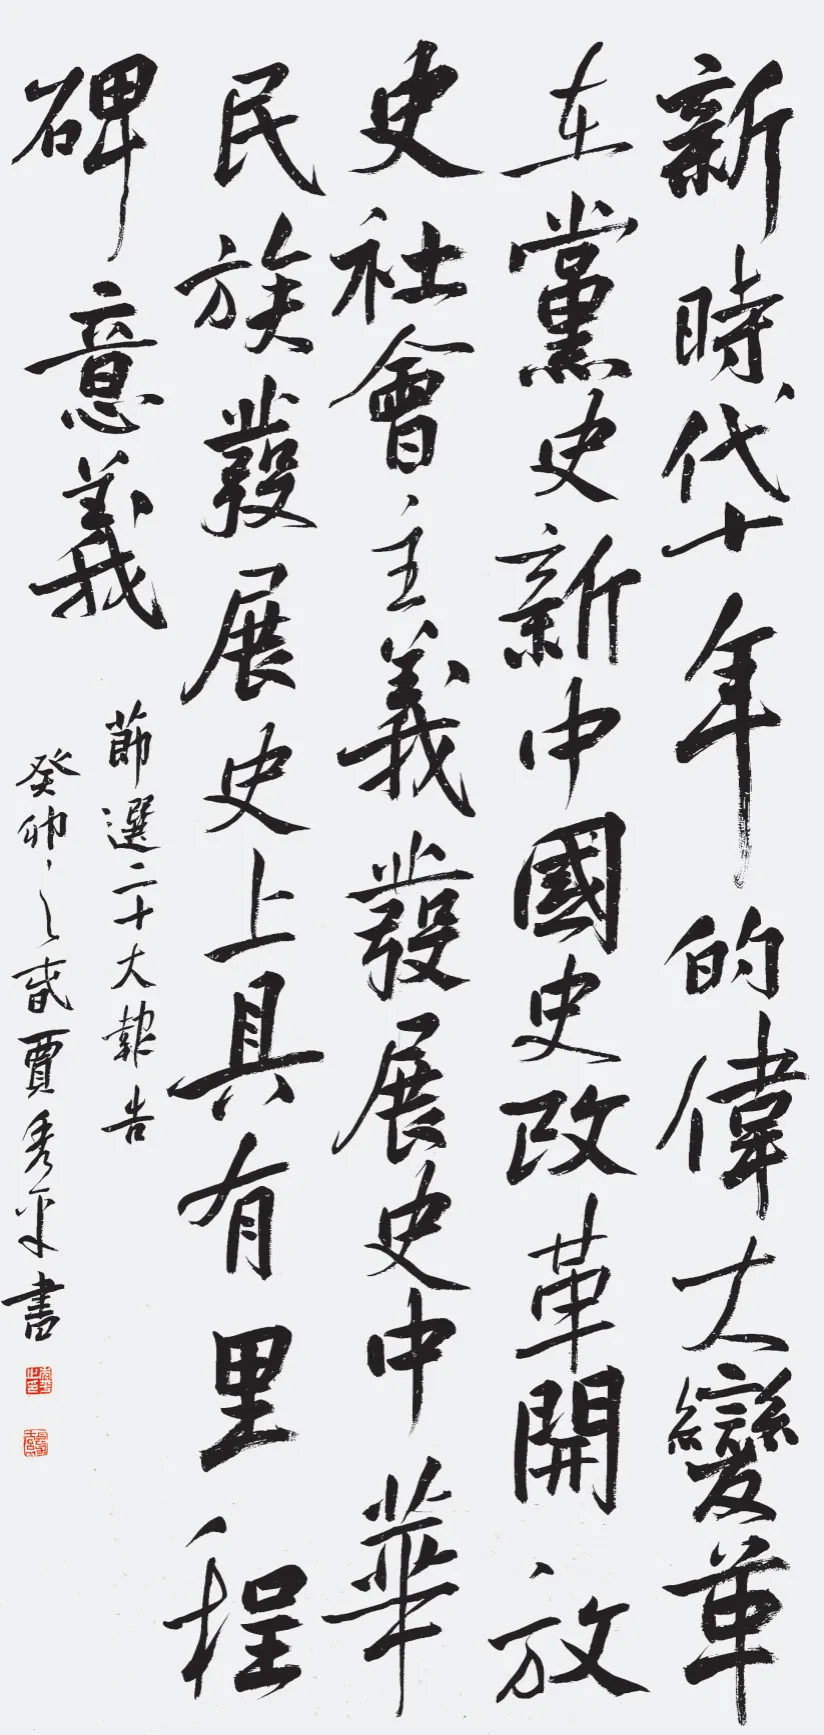 新時代十年的偉大變革
在黨史新中國史改革開放
史社會主義發展史中華
民族發展史上具有里程
碑意義
節選二十大報告
癸卯之春賈秀平書